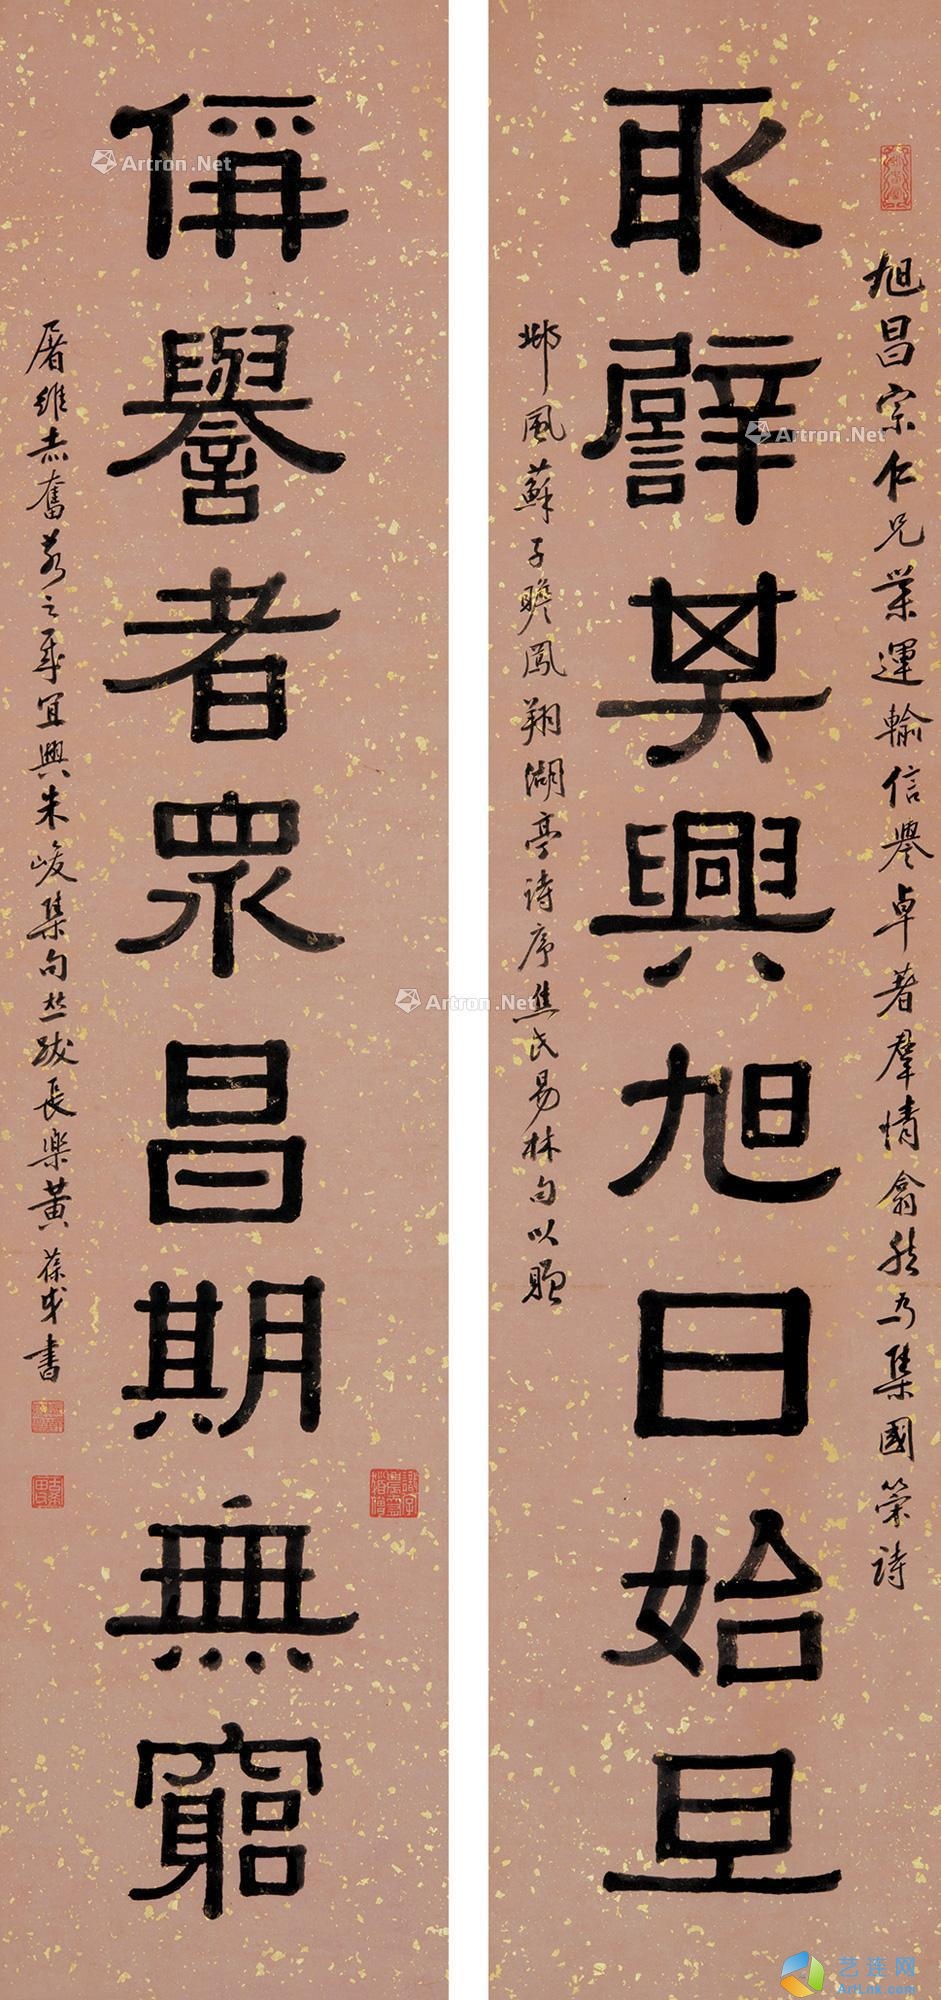 取譬其興旭日始旦
旭昌宗仁兄業運輸信譽卓著羣情翕然為集國策詩
邶風蘇子瞻鳳翔湖亭詩序焦氏易林句以贈
偁譽者眾昌期無窮
屠維赤奮若之歲宜興朱峻集句並跋長樂黃葆戉書
Artron.Net
Artron.Net
Artron.Net
艺连网
ArtLnk.com